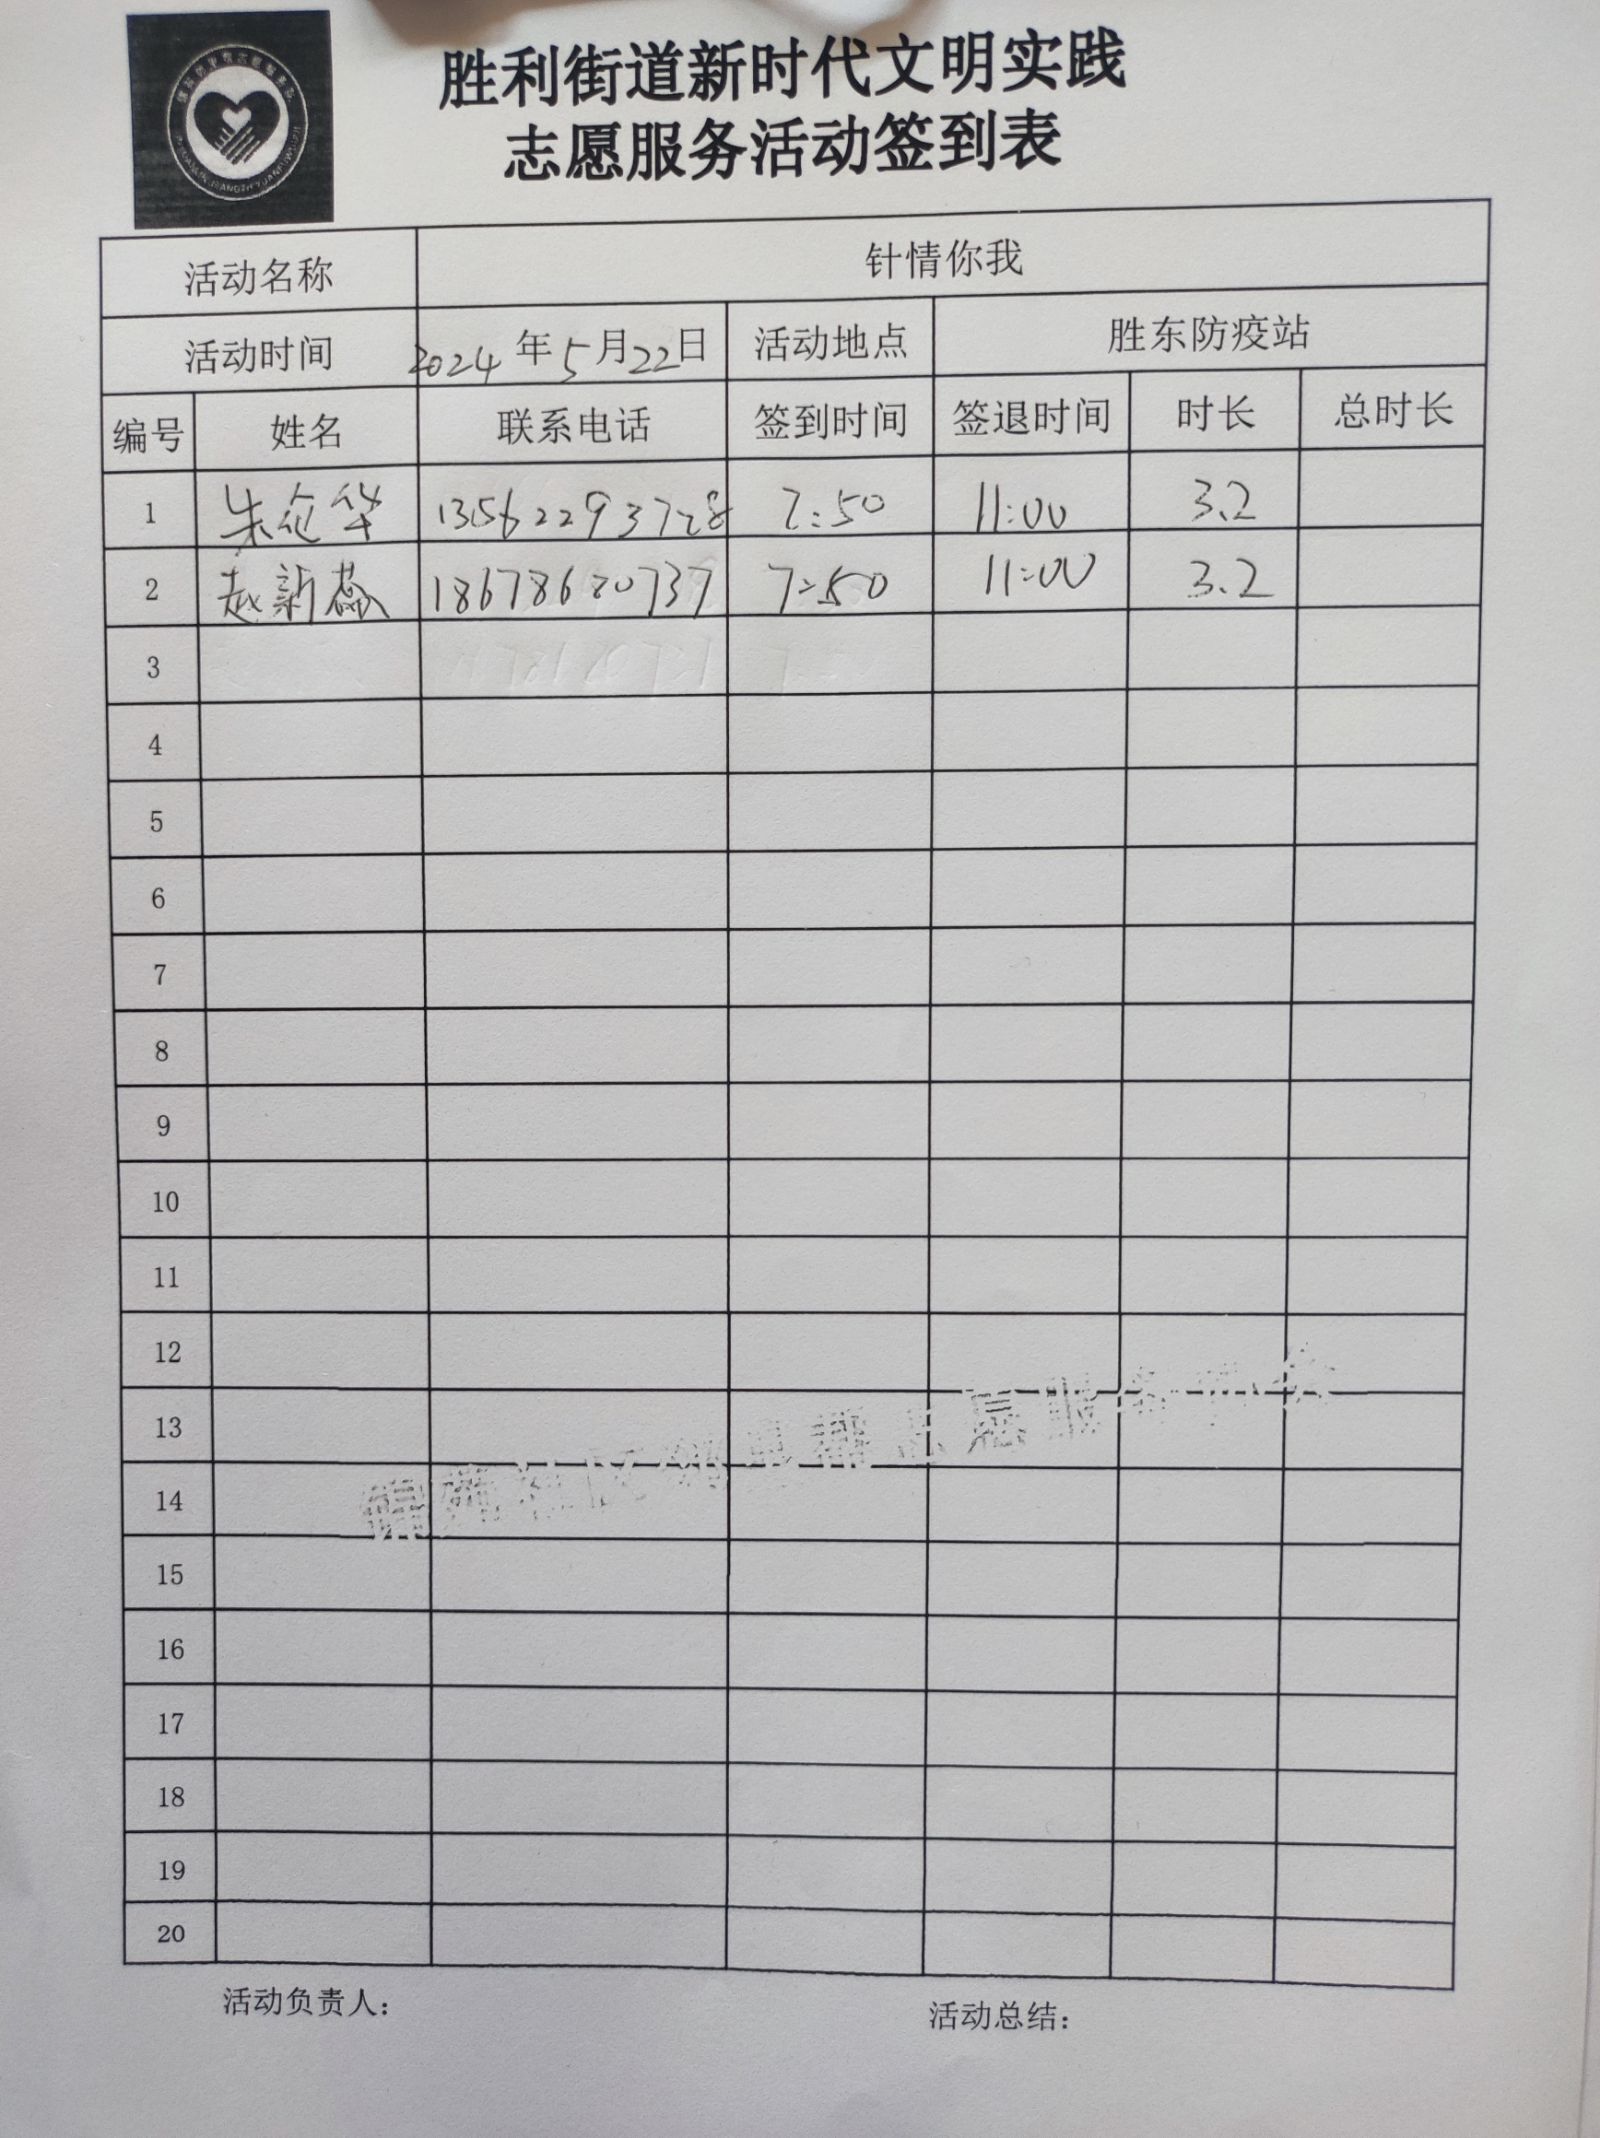 胜利街道新时代文明实践
志愿服务活动签到表
活动名称 针情你我
活动时间 2024年5月22日 活动地点 胜东防疫站
编号 姓名 联系电话 签到时间 签退时间 时长 总时长
1 朱华 13562293728 7:50 11:00 3.2
2 赵新 18678680737 7:50 11:00 3.2
3
4
5
6
7
8
9
10
11
12
13
14
15
16
17
18
19
20
活动负责人： 活动总结：